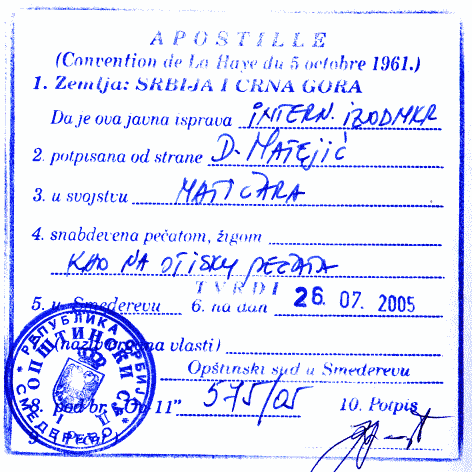 APOSTILLE
(Convention de La Haye du 5 octobre 1961.)
1. Zemlja: SRBIJA I CRNA GORA
Da je ova javna isprava INTERN. IZVOD MKR
2. potpisana od strane D. MATEJIĆ
3. u svojstvu MATIČARA
4. snabdevena pečatom, žigom
KAO NA OTISKU PEČATA
TVRDI
5. u Smederevu 6. na dan 26. 07. 2005
vlasti)
Opštinski sud u Smederevu
8. pod br. "Ov-11" 575/05 10. Potpis
9.
РЕПУБЛИКА СРБИЈА
ОПШТИНСКИ СУД
СМЕДЕРЕВО